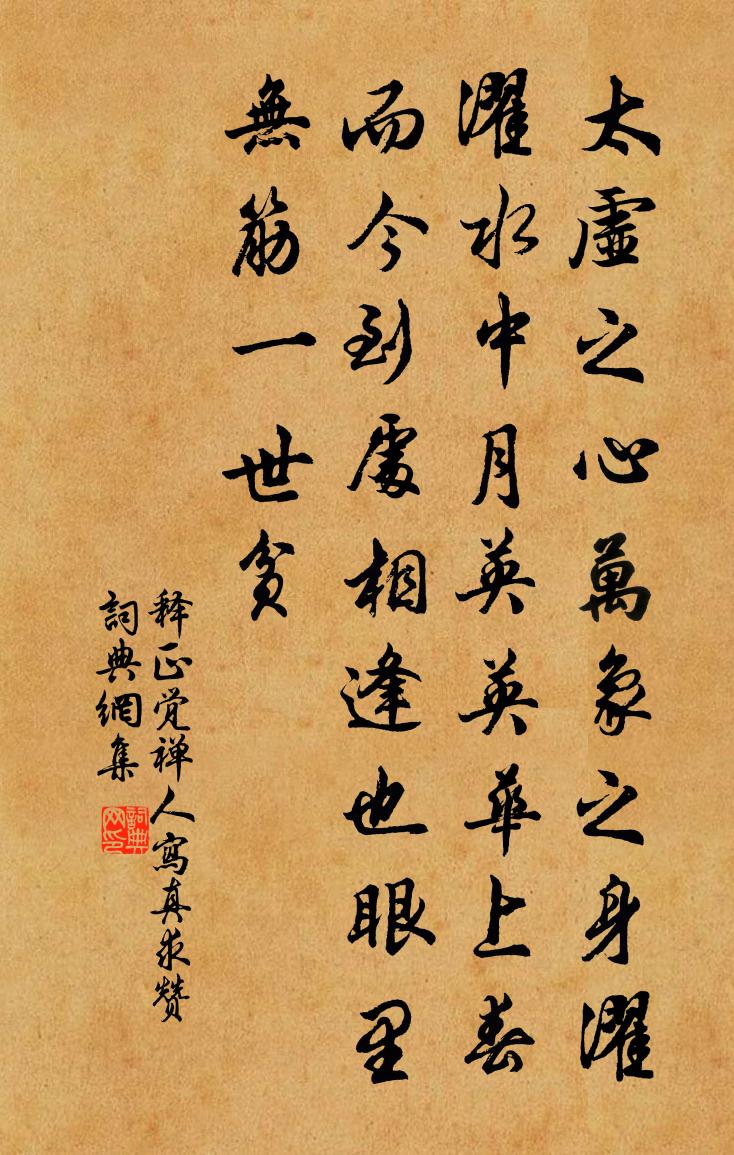 太虛之心萬象之身濯
濯水中月英英華上春
而今到處相逢也眼里
無筋一世貧
释正觉禅人寫真求贊
詞典網集
詞典网印